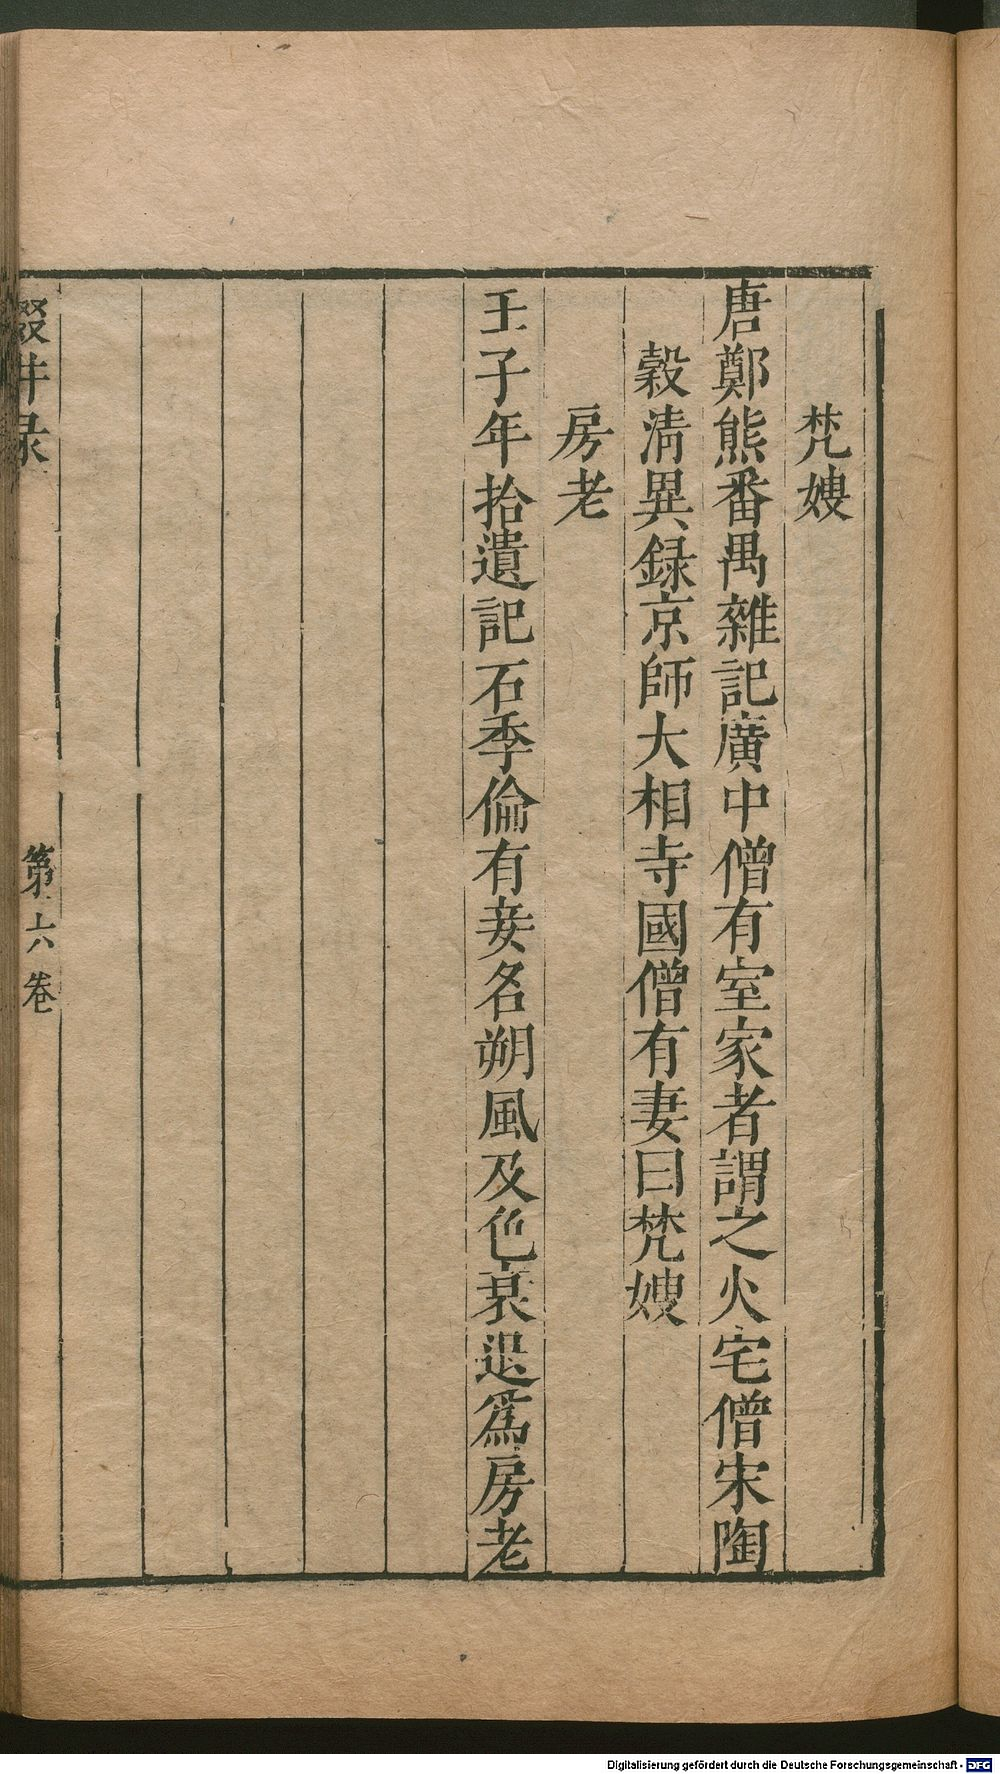 梵嫂
唐鄭熊番禺雜記廣中僧有室家者謂之火宅僧宋陶
穀清異録京師大相寺國僧有妻曰梵嫂
房老
王子年拾遺記石季倫有妾名朔風及色衰退爲房老
第六卷
Digitalisierung gefördert durch die Deutsche Forschungsgemeinschaft - DFG